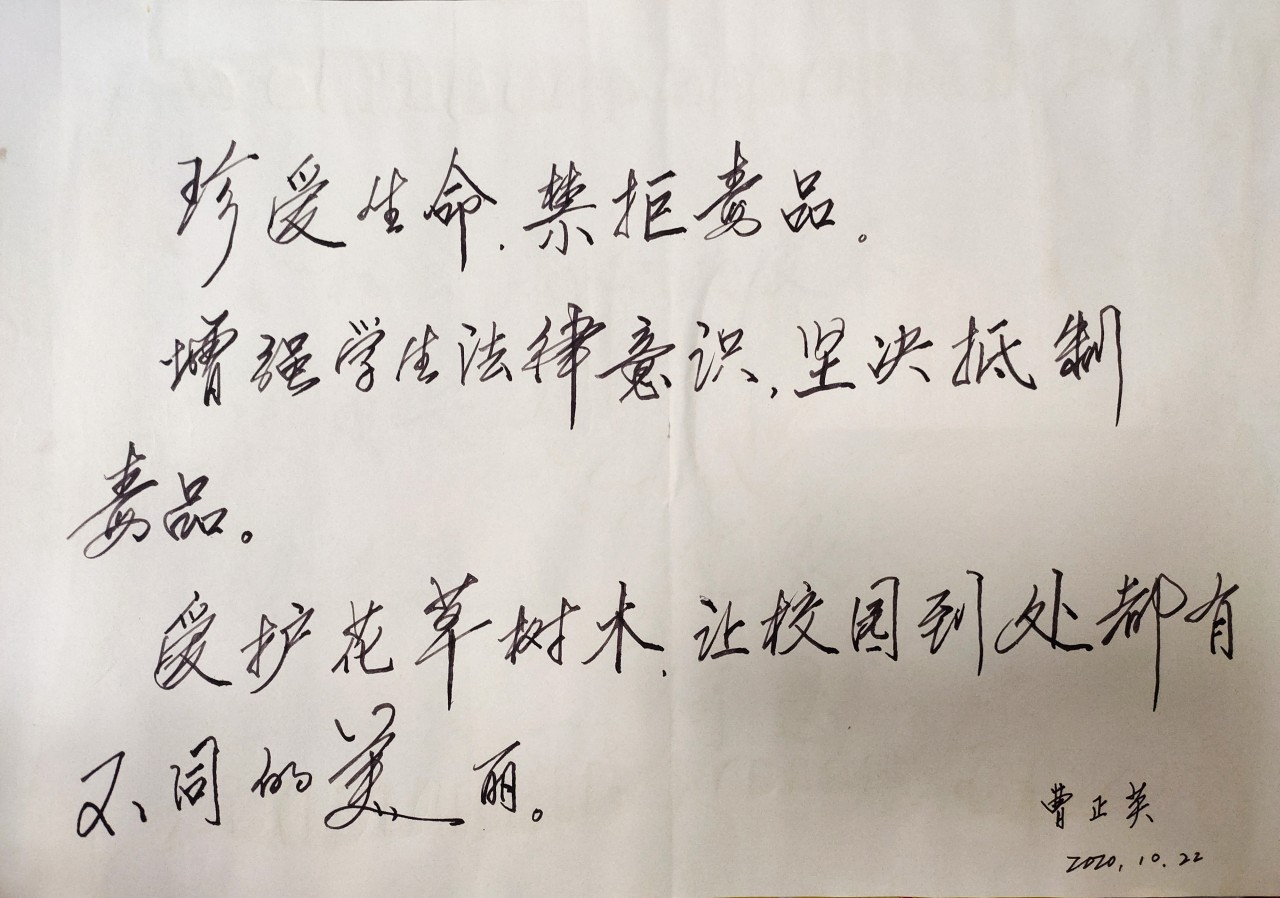 珍爱生命,禁拒毒品。
增强学生法律意识,坚决抵制
毒品。
爱护花草树木,让校园到处都有
不同的美丽。
曹正英
2020.10.22